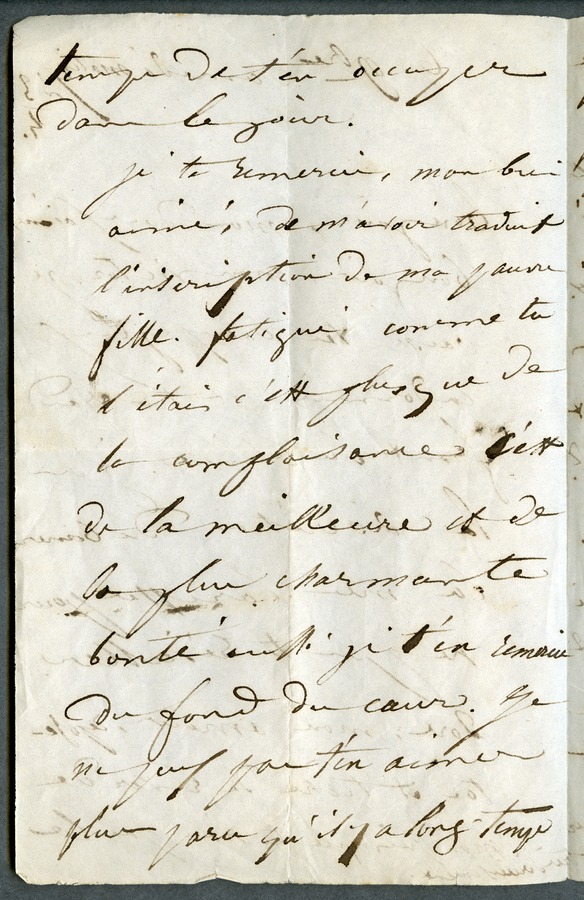 temps de t'en occuper
dans le jour.
je te remercie, mon bien
aimé, de m'avoir traduit
l'inscription de ma pauvre
fille. fatigué comme tu
l'étais c'est plus que de
la complaisance c'est
de la meilleure et de
la plus charmante
bonté aussi je t'en remercie
du fond du cœur. Je
ne peux pas t'en aimer
plus parce qu'il y a long-temps